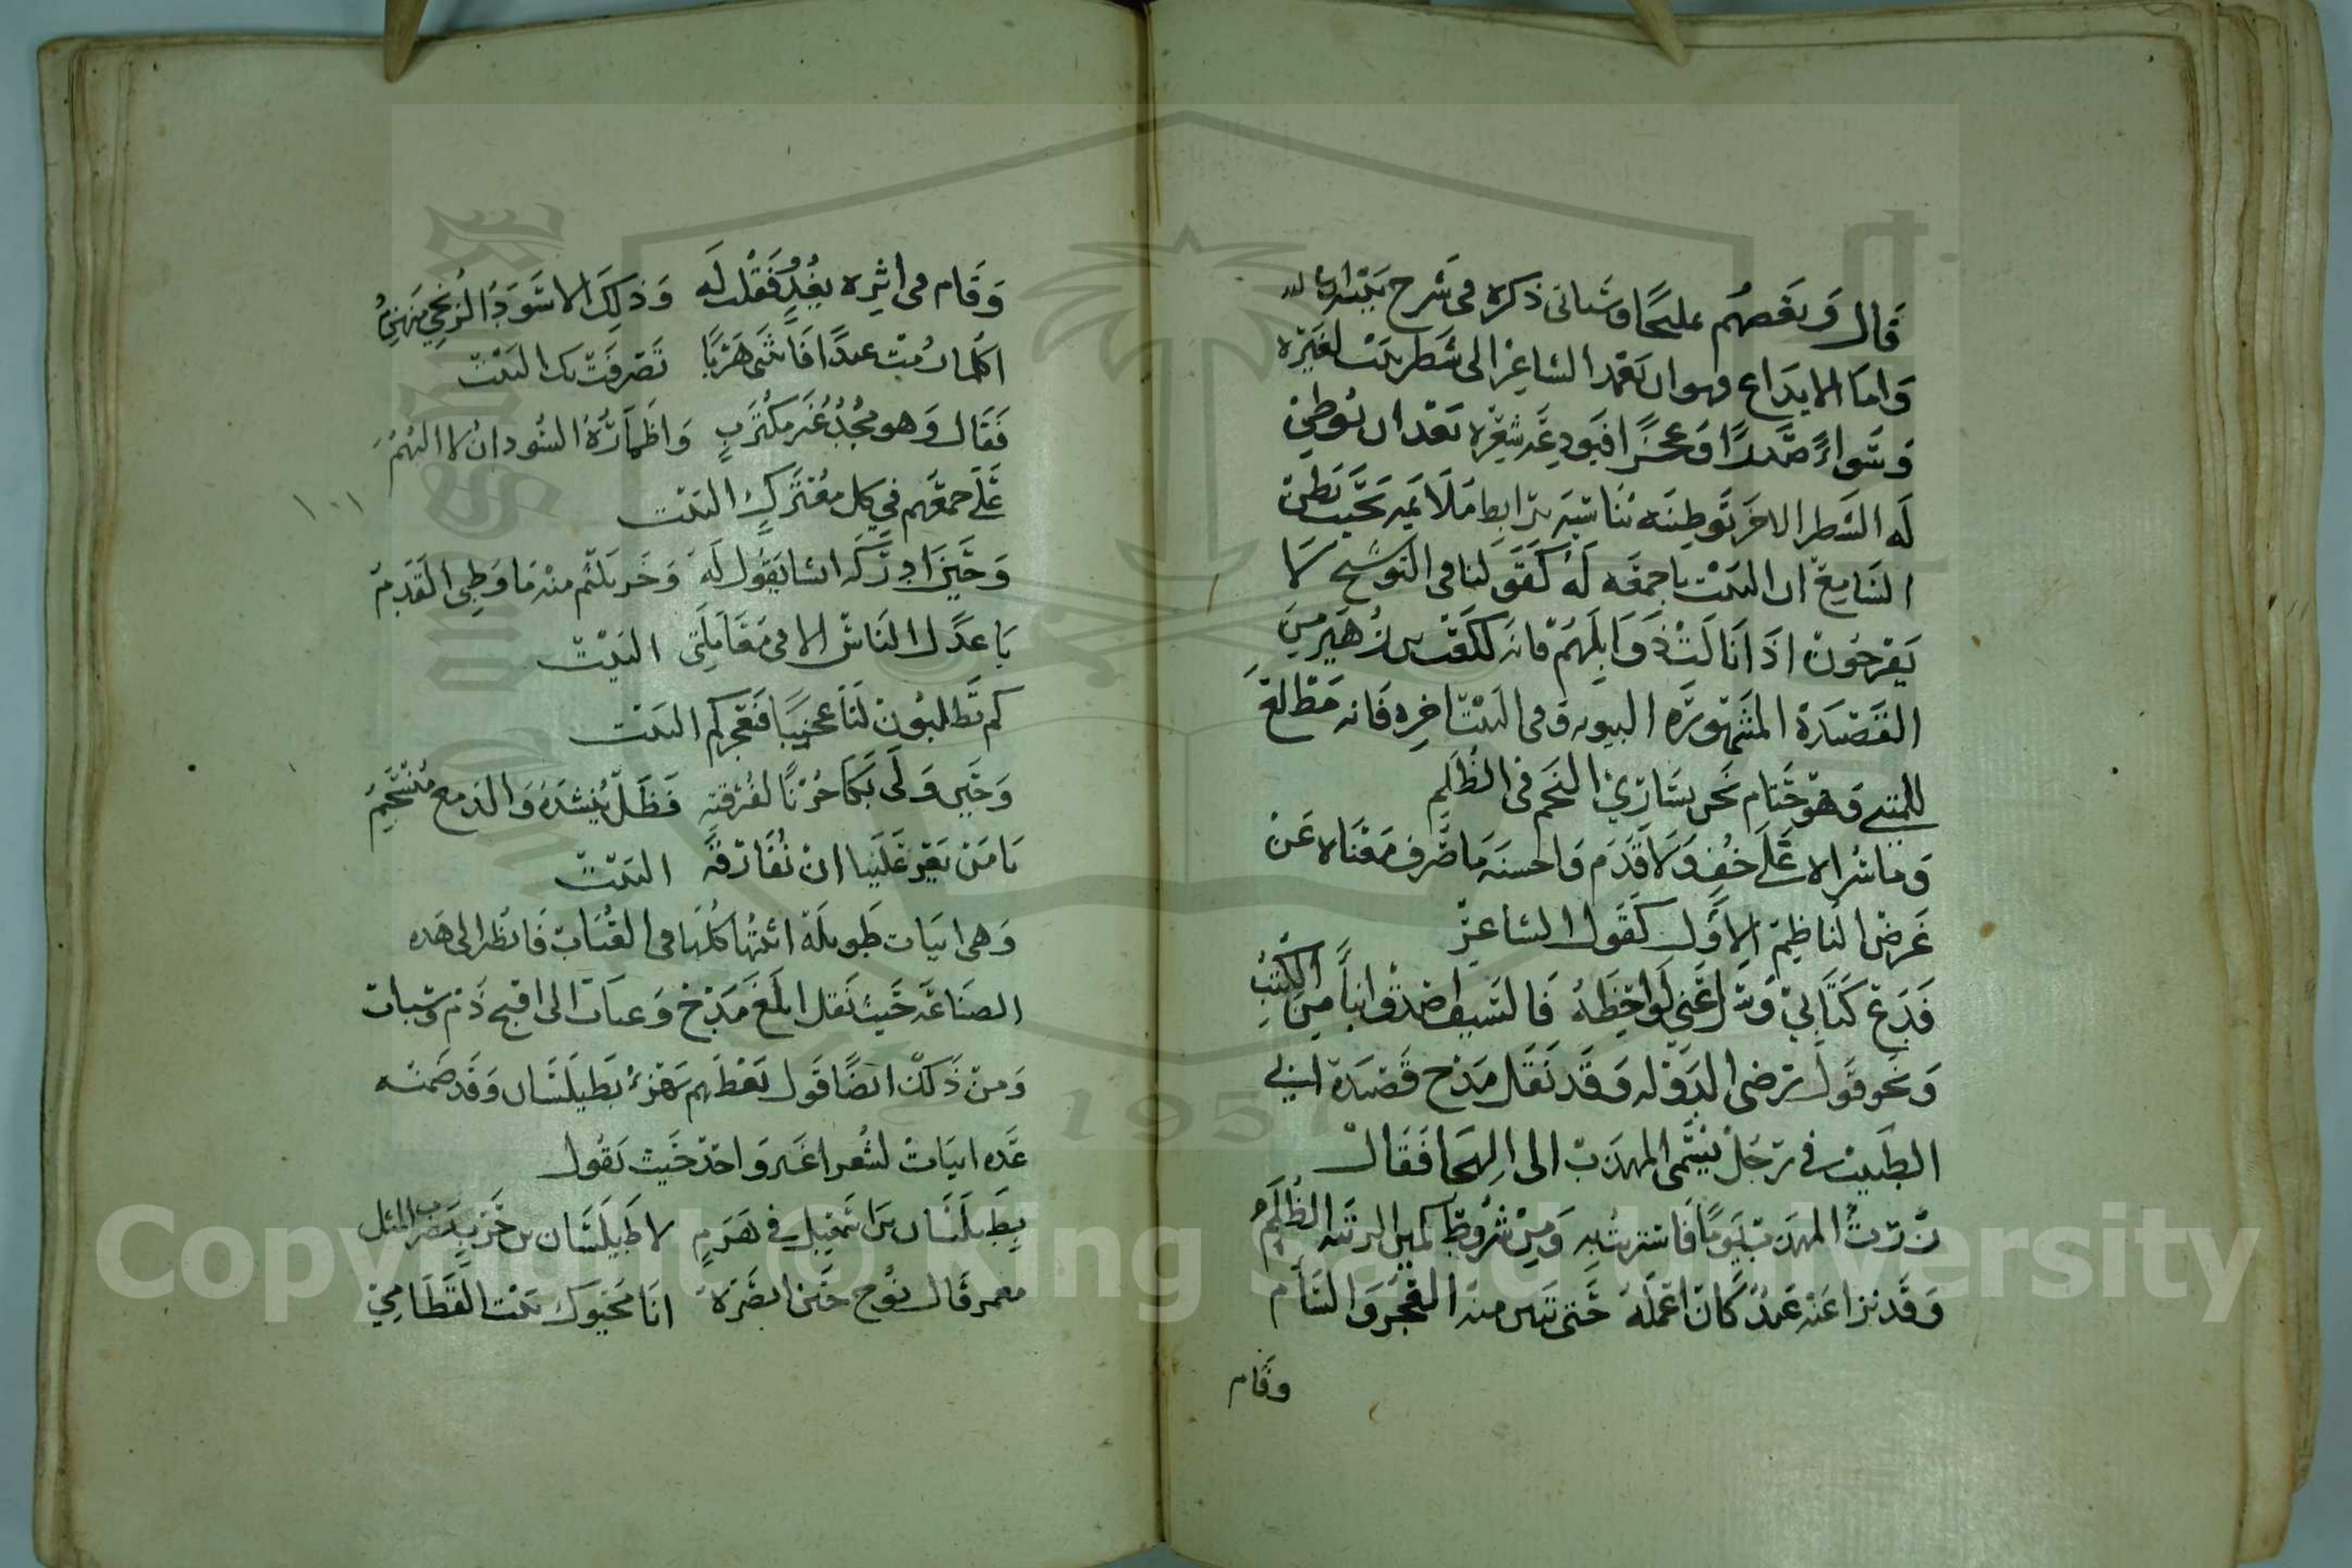 قال وبعضهم مليحا وسياتى ذكره فى شرح بيته ان شا الله
واما الايداع فهو ان يعمد الشاعر الى شطر بيت لغيره
وسواء صدرا وعجزا فيودعه شعره بعد ان يوطي
له الشطر الاخر توطئه تناسبه برابط ملايمه بحيث يظن
السامع ان البيت باجمعه له كقولنا فى التوشيح لا
يفرحون اذا نالت ذوابلهم فانه لكعب بن زهير من
القصيدة المشهورة النبويه وفى البيت اخره فانه مطلع
للمتنبي وهو حتام نحن نساري النجم فى الظلم
وما سُراه على خف ولا قدم واحسنه ما صرف معناه عن
غرض الناظم الاول كقول الشاعر
فدع كتابي وسل عني لواحظه فالسيف اصدق انباء من الكتب
ونحو قول رضى الدوله وقد نقل مدح قصيدة ابي
الطيب فى رجل يسمى المهذب الى الهجا فقال
زرت المهذب يوما فاستربت به ومن شروط كمين الريبة الظلم
وقد نزا عنه عبد كان اعمله حتى تبين منه العجز والسام
وقام
وقام فى اثره يعدو فقلت له وذلك الاسود الزنجي منهزم
اكلما رمت عبدا فانثنى هربا تصرفت بك البيت
فقال وهو مجد غير مكترث واظماته السودان لا البهم
علي جمعهم في كل معترك البيت
وحين ادركه انشا يقول له وخر يلثم منه ما وطي القدم
يا عدل الناس الا فى مقابلتي البيت
كم تطلبون لنا عجيبا فعجزكم البيت
وحين ولى بكا حزنا لفرقته فظل ينشده والدمع منسجم
يا من يعز علينا ان نفارقه البيت
وهى ابيات طويله اثبتها كلها فى العتاب فانظر الى هذه
الصناعه حيث نقل ابلغ مدح وعتاب الى اقبح ذم وسباب
ومن ذلك ايضا قول بعضهم يهزء بطيلسان وقد ضمنه
عده ابيات لشعرا غير واحد حيث يقول
بطيلسان براسمعيل في هرم لا طيلسان بن حرب يضرب المثل
معمر قال نوح حين ابصره انا محيوك بيت القطامي
١٠١
Copyright © King Saud University
1957